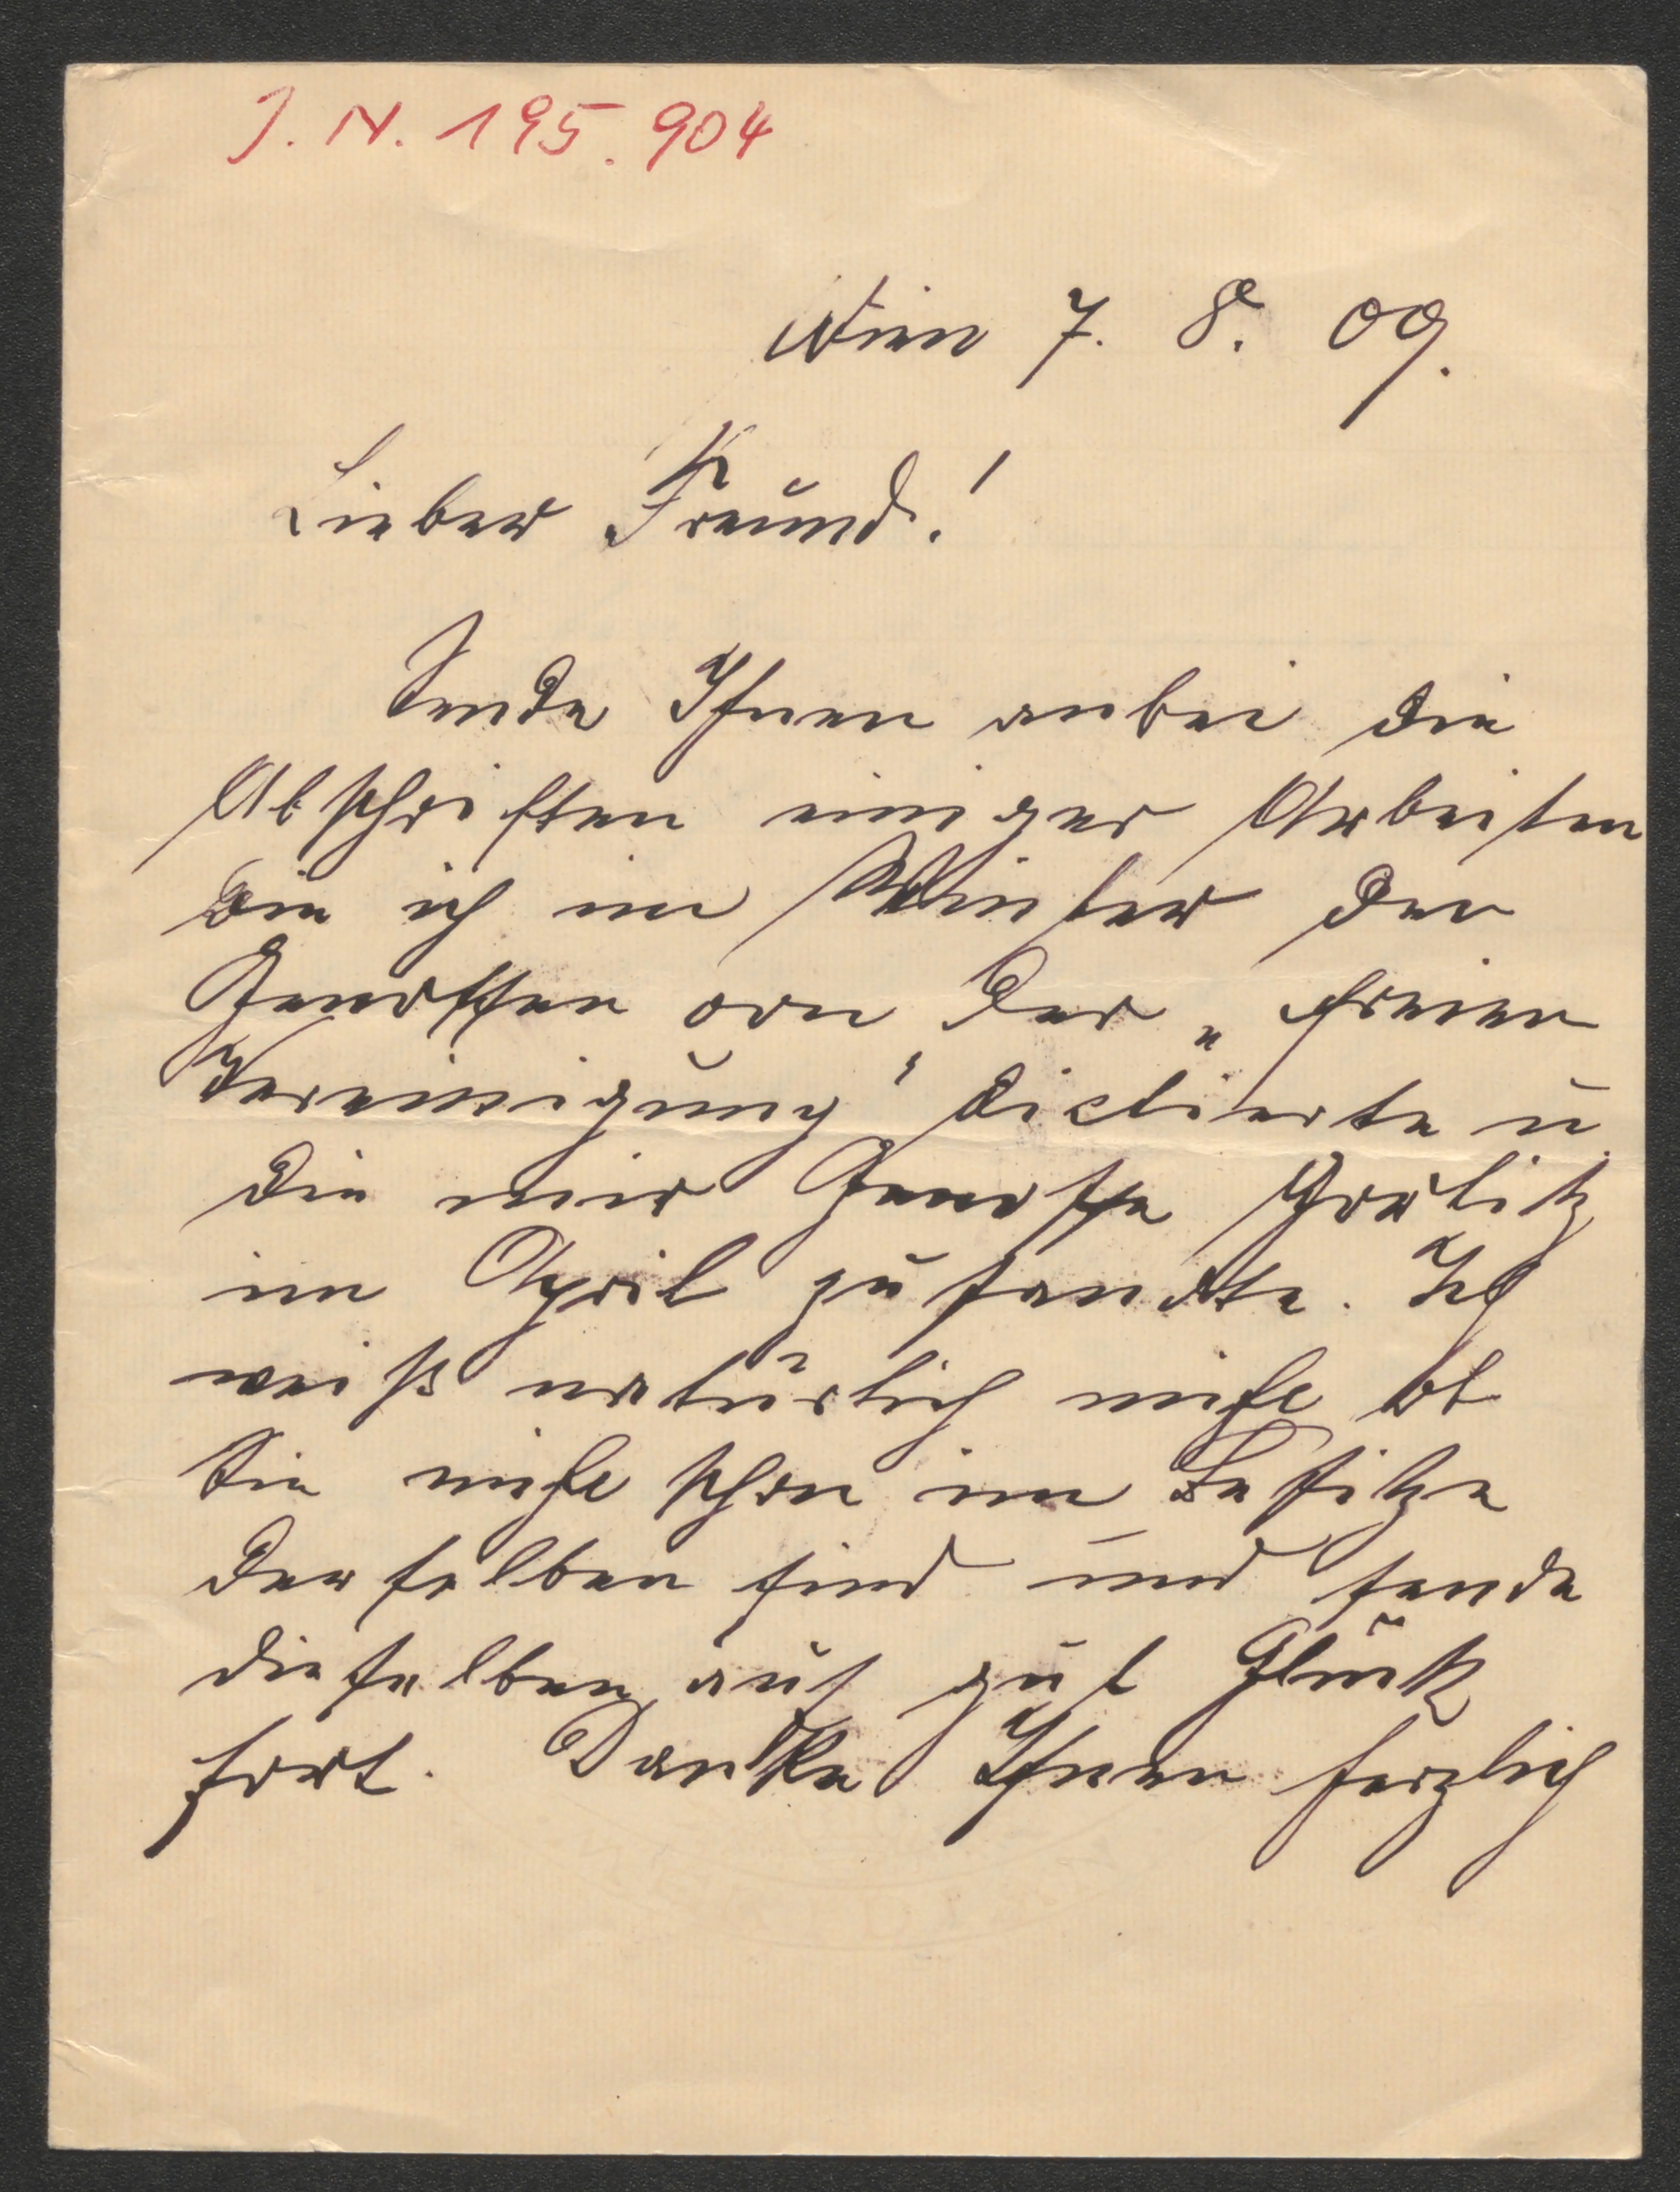 J. N. 195.904
Wien 7. 8. 09.
Lieber Freund!
Sende Ihnen anbei die
Abschriften einiger Arbeiten
die ich im Winter den
Genossen von der „freien
Vereinigung" dictierte u
die mir Genosse
im April zusandte. Ich
weiß natürlich nicht ob
Sie nicht schon im Besitze
derselben sind und sende
dieselben auf gut Glück
fort. Danke Ihnen herzlich